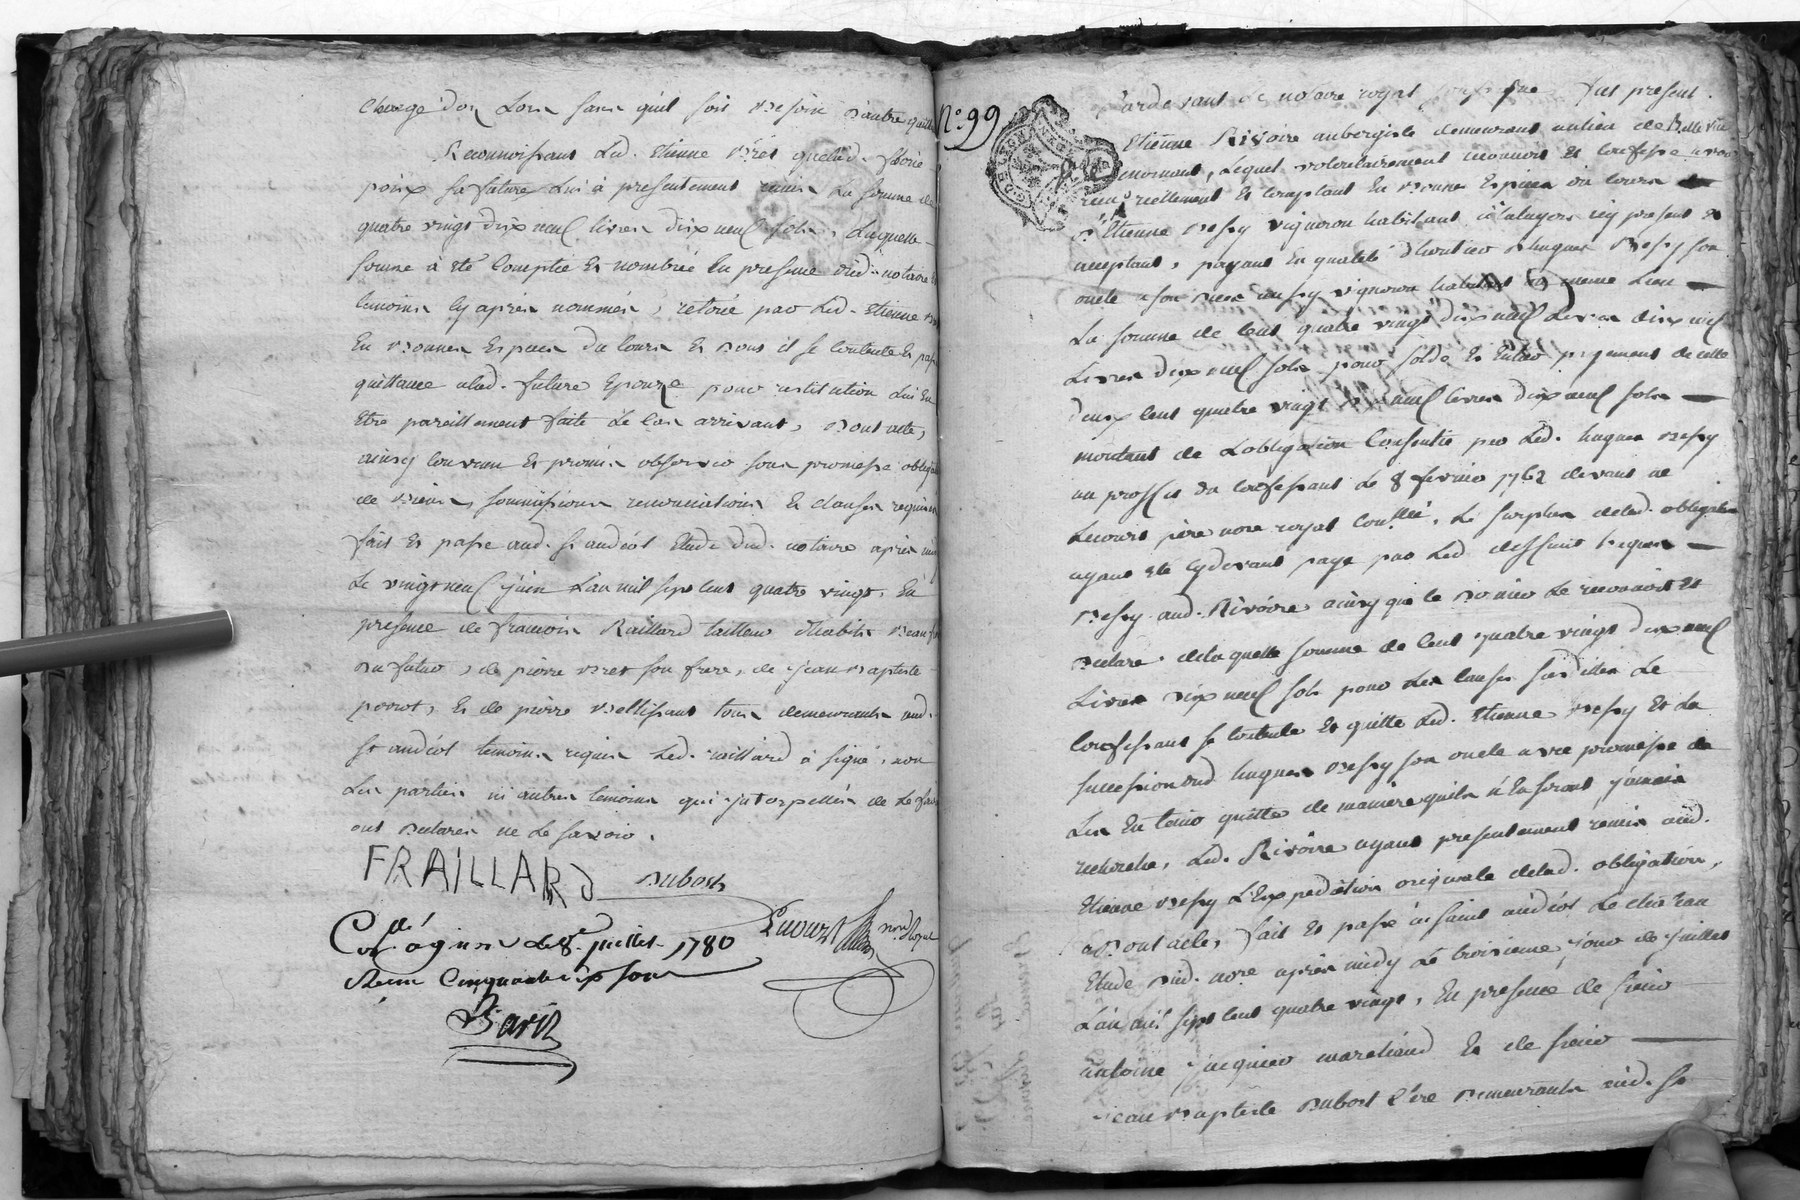 chargé dors Lors sans quil soit Besoin dautre quitt
Reconnoissant Led. Etienne Bret quelad. 
poix sa future Lui à presentement remis La somme de
quatre vingt dix neuf livres dix neuf sols, Laquelle
somme à été Comptée Et nombrée En presence dud. notaire
temoins cy après nommés, retirée par Led. Etienne
En Bonnes Especes du Cours Et dont il se Contente Et passe
quittance alad. future Epouze pour restitution Lui En
Etre pareillement faite Le Cas arrivant, Dont acte,
ainsy Convenu Et promis observer sous promesse oblig
de Biens, soumissions renonciations Et clauses requises
fait Et passé aud. St andéol Etude dud. notaire après midi
Le vingt neuf juin L'an mil sept cent quatre vingt, En
presence de francois Raillard tailleur d'habits Beaufr
du futur, de pierre Bret son frere, de jean Baptiste
perrot, Et de pierre Bellissant tous demeurants aud.
St andéol temoins requis Led. raillard à signé, non
Les parties ni autres temoins qui jnterpellés de Le faire
ont Declarés ne Le savoir.
FRAILLARD Dubost
Conllé à givors Le 8e juillet 1780 Lecourt nore Royal
Reçu Cinquante six sous
Barin
N°. 99
Pardevant Le notaire royal soussigné fut present
Etienne Rivoire aubergiste demeurant au lieu de Bellevue
mornant, Lequel volontairement reconnoit Et Confesse avoir
reçu reellement Et Comptant En Bonnes Especes du Cours
d'Etienne Bessy vigneron habitant à Chalayers icy present Et
acceptant, payant En qualité d'heritier d'hugues Bessy son
oncle vigneron habitant du meme Lieu
La somme de Cent quatre vingt dix neuf Livres dix neuf
sols pour solde Et Entier payement de celle
deux Cent quatre vingt dix neuf livres dix neuf sols
montant de L'obligation Consentie par Led. hugues Bessy
au proffit du Confessant Le 8 fevrier 1762 devant me
Lecourt père nore royal Conllée, Le surplus de lad. obligation
ayant été cydevant payé par Led. deffunt hugues
Bessy aud. Rivoire ainsy que Le dernier Le reconnoit Et
Declare, de laquelle somme de Cent quatre vingt dix neuf
Livres dix neuf sols pour Les Causes susdites Le
Confessant se Contente Et quitte Led. Etienne Bessy Et La
succession dud hugues Bessy son oncle avec promesse de
Les En tenir quitte de maniere quils n'En seront jamais
recherchés, Led. Rivoire ayant presentement remis aud.
Etienne Bessy L'Expedition originale delad. obligation,
Dont acte, fait Et passé à saint andéol Le chateau
Etude dud. nore après midy Le troisieme jour de juillet
L'an mil sept Cent quatre vingt, En presence de sieur
antoine jacquier marchand Et de sieur
jean Baptiste Dubost Cere Demeurants aud. St